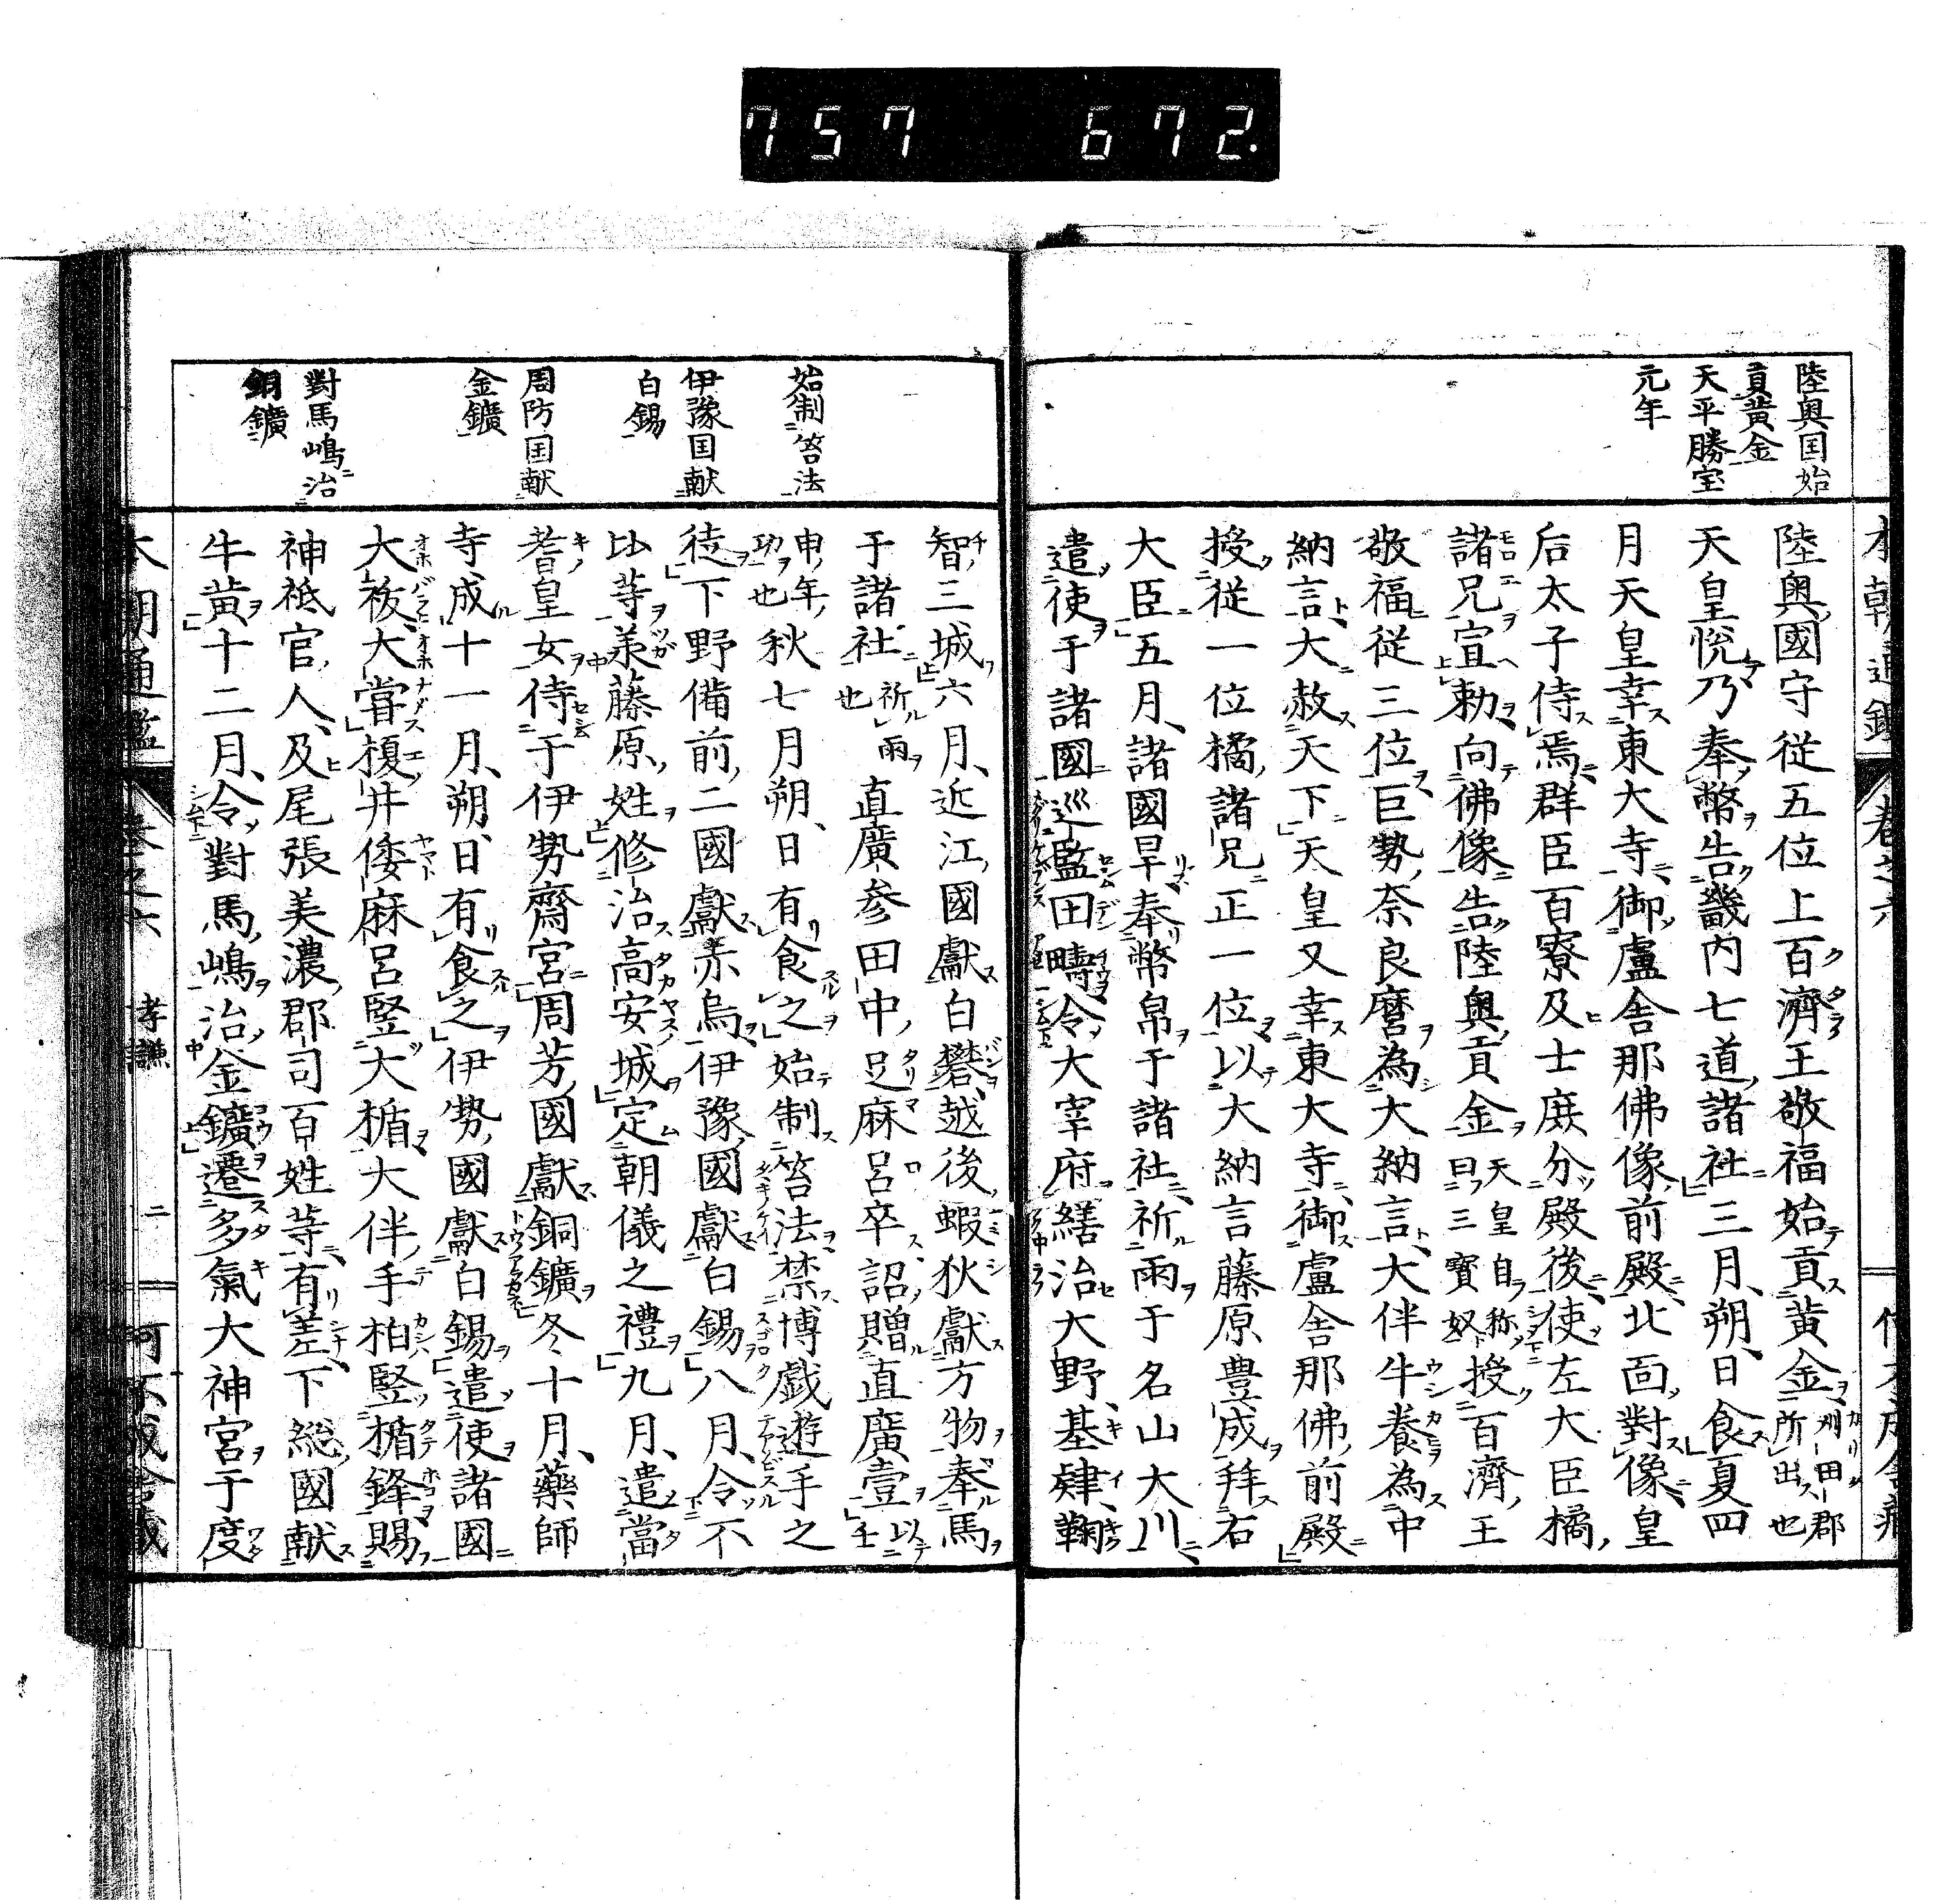 757 672.
陸奥国始
貢黄金
天平勝宝
元年
陸奥國守従五位上百濟王敬福始貢黄金刈田郡所出也
天皇悦乃奉幣告畿内七道諸社三月朔日食夏四
月天皇幸東大寺御盧舎那佛像前殿北面對像皇
后太子侍焉群臣百寮及士庶分殿後使左大臣橘
諸兄宣勅向佛像告陸奥貢金天皇自称曰三寳奴授百濟王
敬福従三位巨勢奈良麿為大納言大伴牛養為中
納言大赦天下天皇又幸東大寺御盧舎那佛前殿
授従一位橘諸兄正一位以大納言藤原豊成拜右
大臣五月諸國旱奉幣帛于諸社祈雨于名山大川
遣使于諸國巡監田疇令大宰府繕治大野基肄鞠
始制笞法
伊豫国献
白錫
周防国献
金鑛
對馬嶋治
銅鑛
智三城六月近江國獻白礬越後蝦狄獻方物奉馬
于諸社祈雨也直廣参田中足麻呂卒詔贈直廣壹以壬
申年功也秋七月朔日有食之始制笞法禁博戯遊手之
徒下野備前二國獻赤烏伊豫國獻白錫八月令不
比等羕藤原姓修治高安城定朝儀之禮九月遣當
耆皇女侍于伊勢齋宮周芳國獻銅鑛冬十月藥師
寺成十一月朔日有食之伊勢國獻白錫遣使諸國
大祓大嘗榎井倭麻呂竪大楯大伴手柏竪楯鋒賜
神祇官人及尾張美濃郡司百姓等有差下総國献
牛黄十二月令對馬嶋治金鑛遷多氣大神宮于度
本朝通鑑 卷之六 孝謙 二